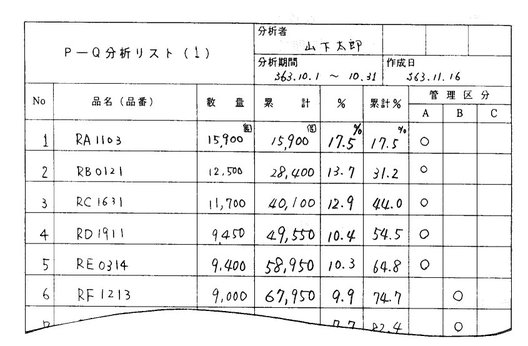 P－Q分析リスト（1）
分析者
山下太郎
分析期間
S63.10.1 ～ 10.31
作成日
S63.11.16
No 品名（品番） 数量 累計 % 累計% 管理区分
A B C
1 RA1103 15,900 15,900 17.5% 17.5% ○
2 RB0121 12,500 28,400 13.7 31.2 ○
3 RC1631 11,700 40,100 12.9 44.0 ○
4 RD1911 9,450 49,550 10.4 54.5 ○
5 RE0314 9,400 58,950 10.3 64.8 ○
6 RF1213 9,000 67,950 9.9 74.7 ○
7 7.7 82.4 ○